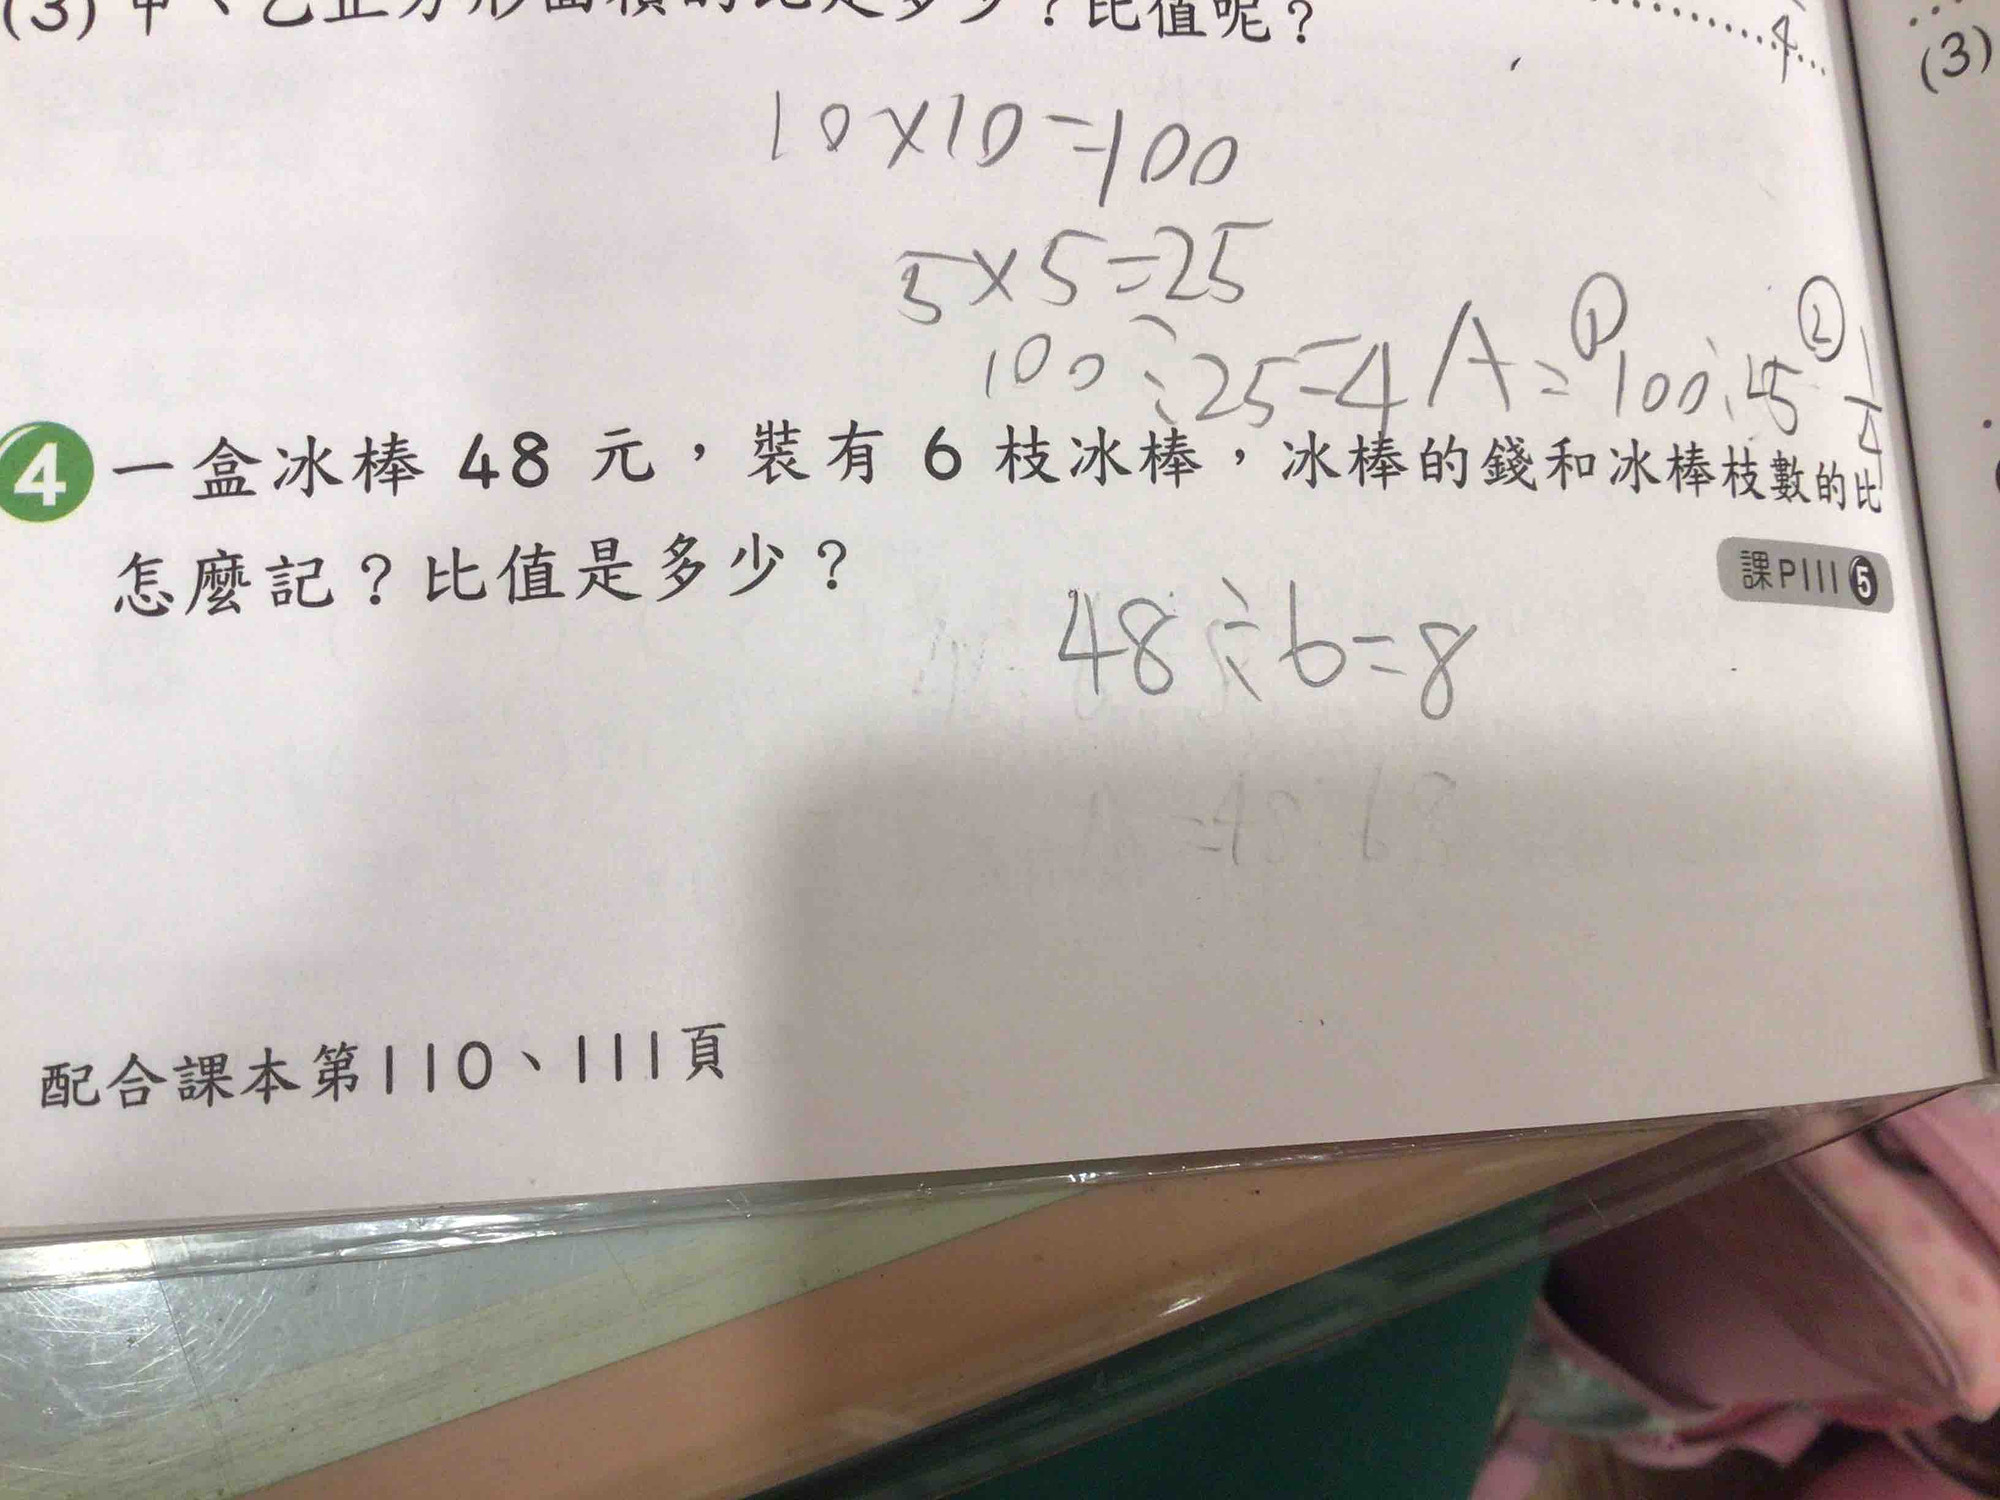 (3) 甲、乙正方形面積的比是多少？比值呢？
4
(3)
10×10=100
5×5=25
100÷25=4 A=①100:25 ②1/4
4 一盒冰棒 48 元，裝有 6 枝冰棒，冰棒的錢和冰棒枝數的比
怎麼記？比值是多少？
課P111 5
48÷6=8
配合課本第110、111頁